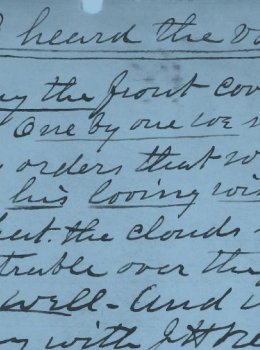 I heard the vo
ay the front cov
One by one we
orders that w
his loving wi
heet. the clouds
trouble over the
well - And
with J H Ne